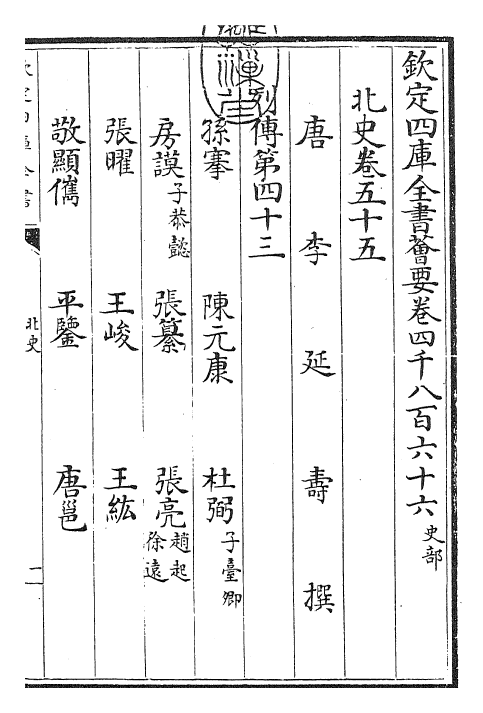 欽定四庫全書薈要卷四千八百六十六 史部
北史卷五十五
唐 李 延 壽 撰
列傳第四十三
孫搴 陳元康 杜弼 子臺卿
房謨 子恭懿 張纂 張亮 趙起 徐遠
張曜 王峻 王紘
敬顯儁 平鑒 唐邕
北史